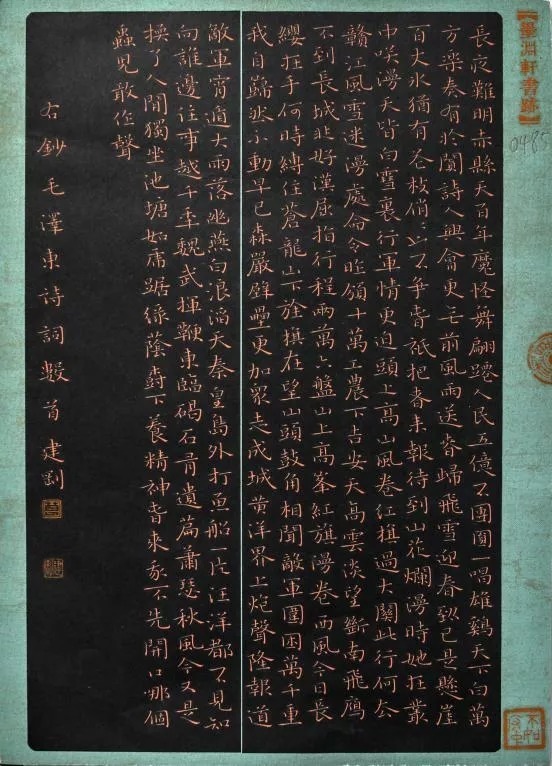 淵軒書跡
長夜難明赤縣天百年魔怪舞翩躚人民五億不團圓一唱雄雞天下白萬
方樂奏有於闐詩人興會更无前風雨送春歸飛雪迎春到已是懸崖
百丈冰猶有花枝俏俏不爭春祇把春來報待到山花爛漫時她在叢
中咲漫天皆白雪裏行軍情更迫頭上高山風卷紅旗過大關此行何去
贛江風雪迷漫處命令昨頒十萬工農下吉安天高雲淡望斷南飛雁
不到長城非好漢屈指行程兩萬六盤山上高峯紅旗漫卷西風今日長
纓在手何時縛住蒼龍山下旌旗在望山頭鼓角相聞敵軍圍困萬千重
我自巋然不動早已森嚴壁壘更加眾志成城黃洋界上炮聲隆報道
敵軍宵遁大雨落幽燕白浪滔天秦皇島外打魚船一片汪洋都不見知
向誰邊往事越千年魏武揮鞭東臨碣石有遺篇蕭瑟秋風今又是
換了人間獨坐池塘如虎踞綠蔭樹下養精神春來我不先開口哪個
蟲兒敢作聲
右鈔毛澤東詩詞數首建剛